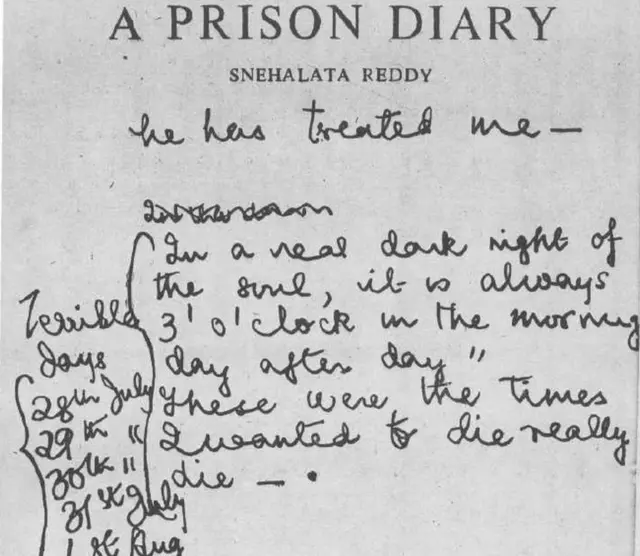 A PRISON DIARY
SNEHALATA REDDY
he has treated me —
In a real dark night of
the soul, it is always
3' o'clock in the morning
day after day"
These were the times
I wanted to die really
die — .
Terrible
days
28th July
29th "
30th "
31st July
1st Aug